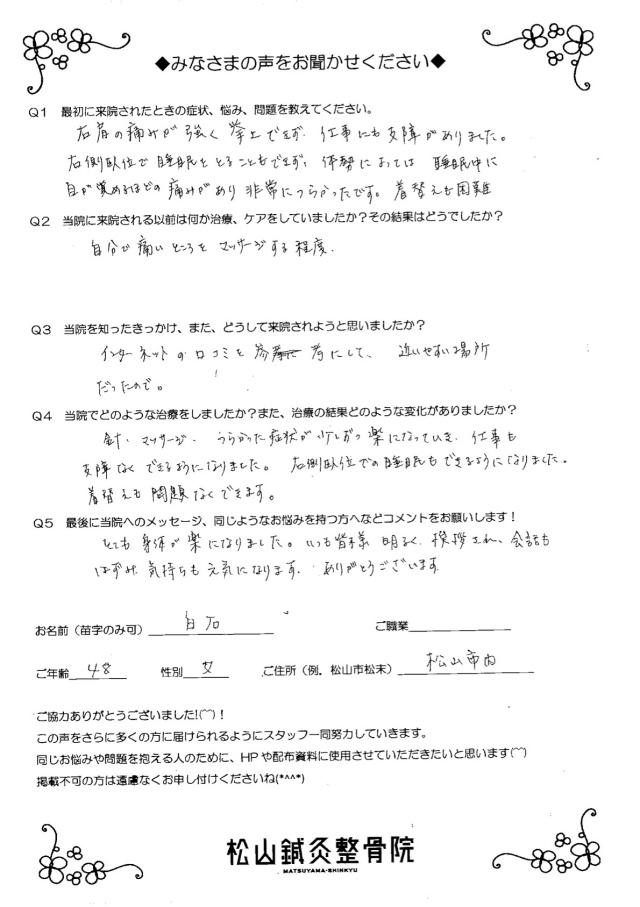 ◆みなさまの声をお聞かせください◆
Q1 最初に来院されたときの症状、悩み、問題を教えてください。
右肩の痛みが強く 挙上できず、仕事にも支障がありました。
右側臥位で睡眠をとることもできず、体勢によっては 睡眠中に
目が覚めるほどの痛みがあり 非常につらかったです。着替えも困難
Q2 当院に来院される以前は何か治療、ケアをしていましたか?その結果はどうでしたか?
自分で痛いところを マッサージする程度.
Q3 当院を知ったきっかけ、また、どうして来院されようと思いましたか?
インターネットの口コミを参考にして、 近いやすい場所
だったので。
Q4 当院でどのような治療をしましたか?また、治療の結果どのような変化がありましたか?
針・マッサージ・ つらかった症状が少しずつ楽になっていき、仕事も
支障なくできるようになりました。 右側臥位での睡眠もできるようになりました。
着替えも問題なくできます。
Q5 最後に当院へのメッセージ、同じようなお悩みを持つ方へなどコメントをお願いします!
とても身体が楽になりました。いつも皆様 明るく、挨拶され、会話も
はずみ、気持ちも元気になります. ありがとうございます
お名前(苗字のみ可) 白石 ご職業
ご年齢 48 性別 女 ご住所(例.松山市松末) 松山市内
ご協力ありがとうございました!(⌒⌒)!
この声をさらに多くの方に届けられるようにスタッフ一同努力していきます。
同じお悩みや問題を抱える人のために、HPや配布資料に使用させていただきたいと思います(⌒⌒)
掲載不可の方は遠慮なくお申し付けくださいね(*^^*)
松山鍼灸整骨院
MATSUYAMA-SHINKYU